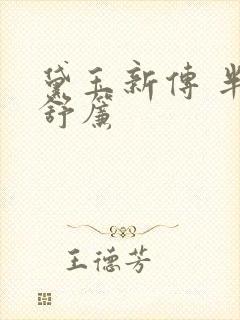 黛玉新傳 半
舒簾
王德芳